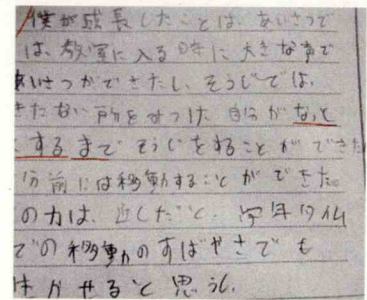 僕が成長したことは、あいさつで
は、教室に入る時に大きな声で
あいさつができたし、そうじでは、
きたない所をみつけ、自分がなっと
するまでそうじをすることができた
分前には移動することができた。
の力は、近しだと、学年タイム
での移動のすばやさでも
はかせると思うし、